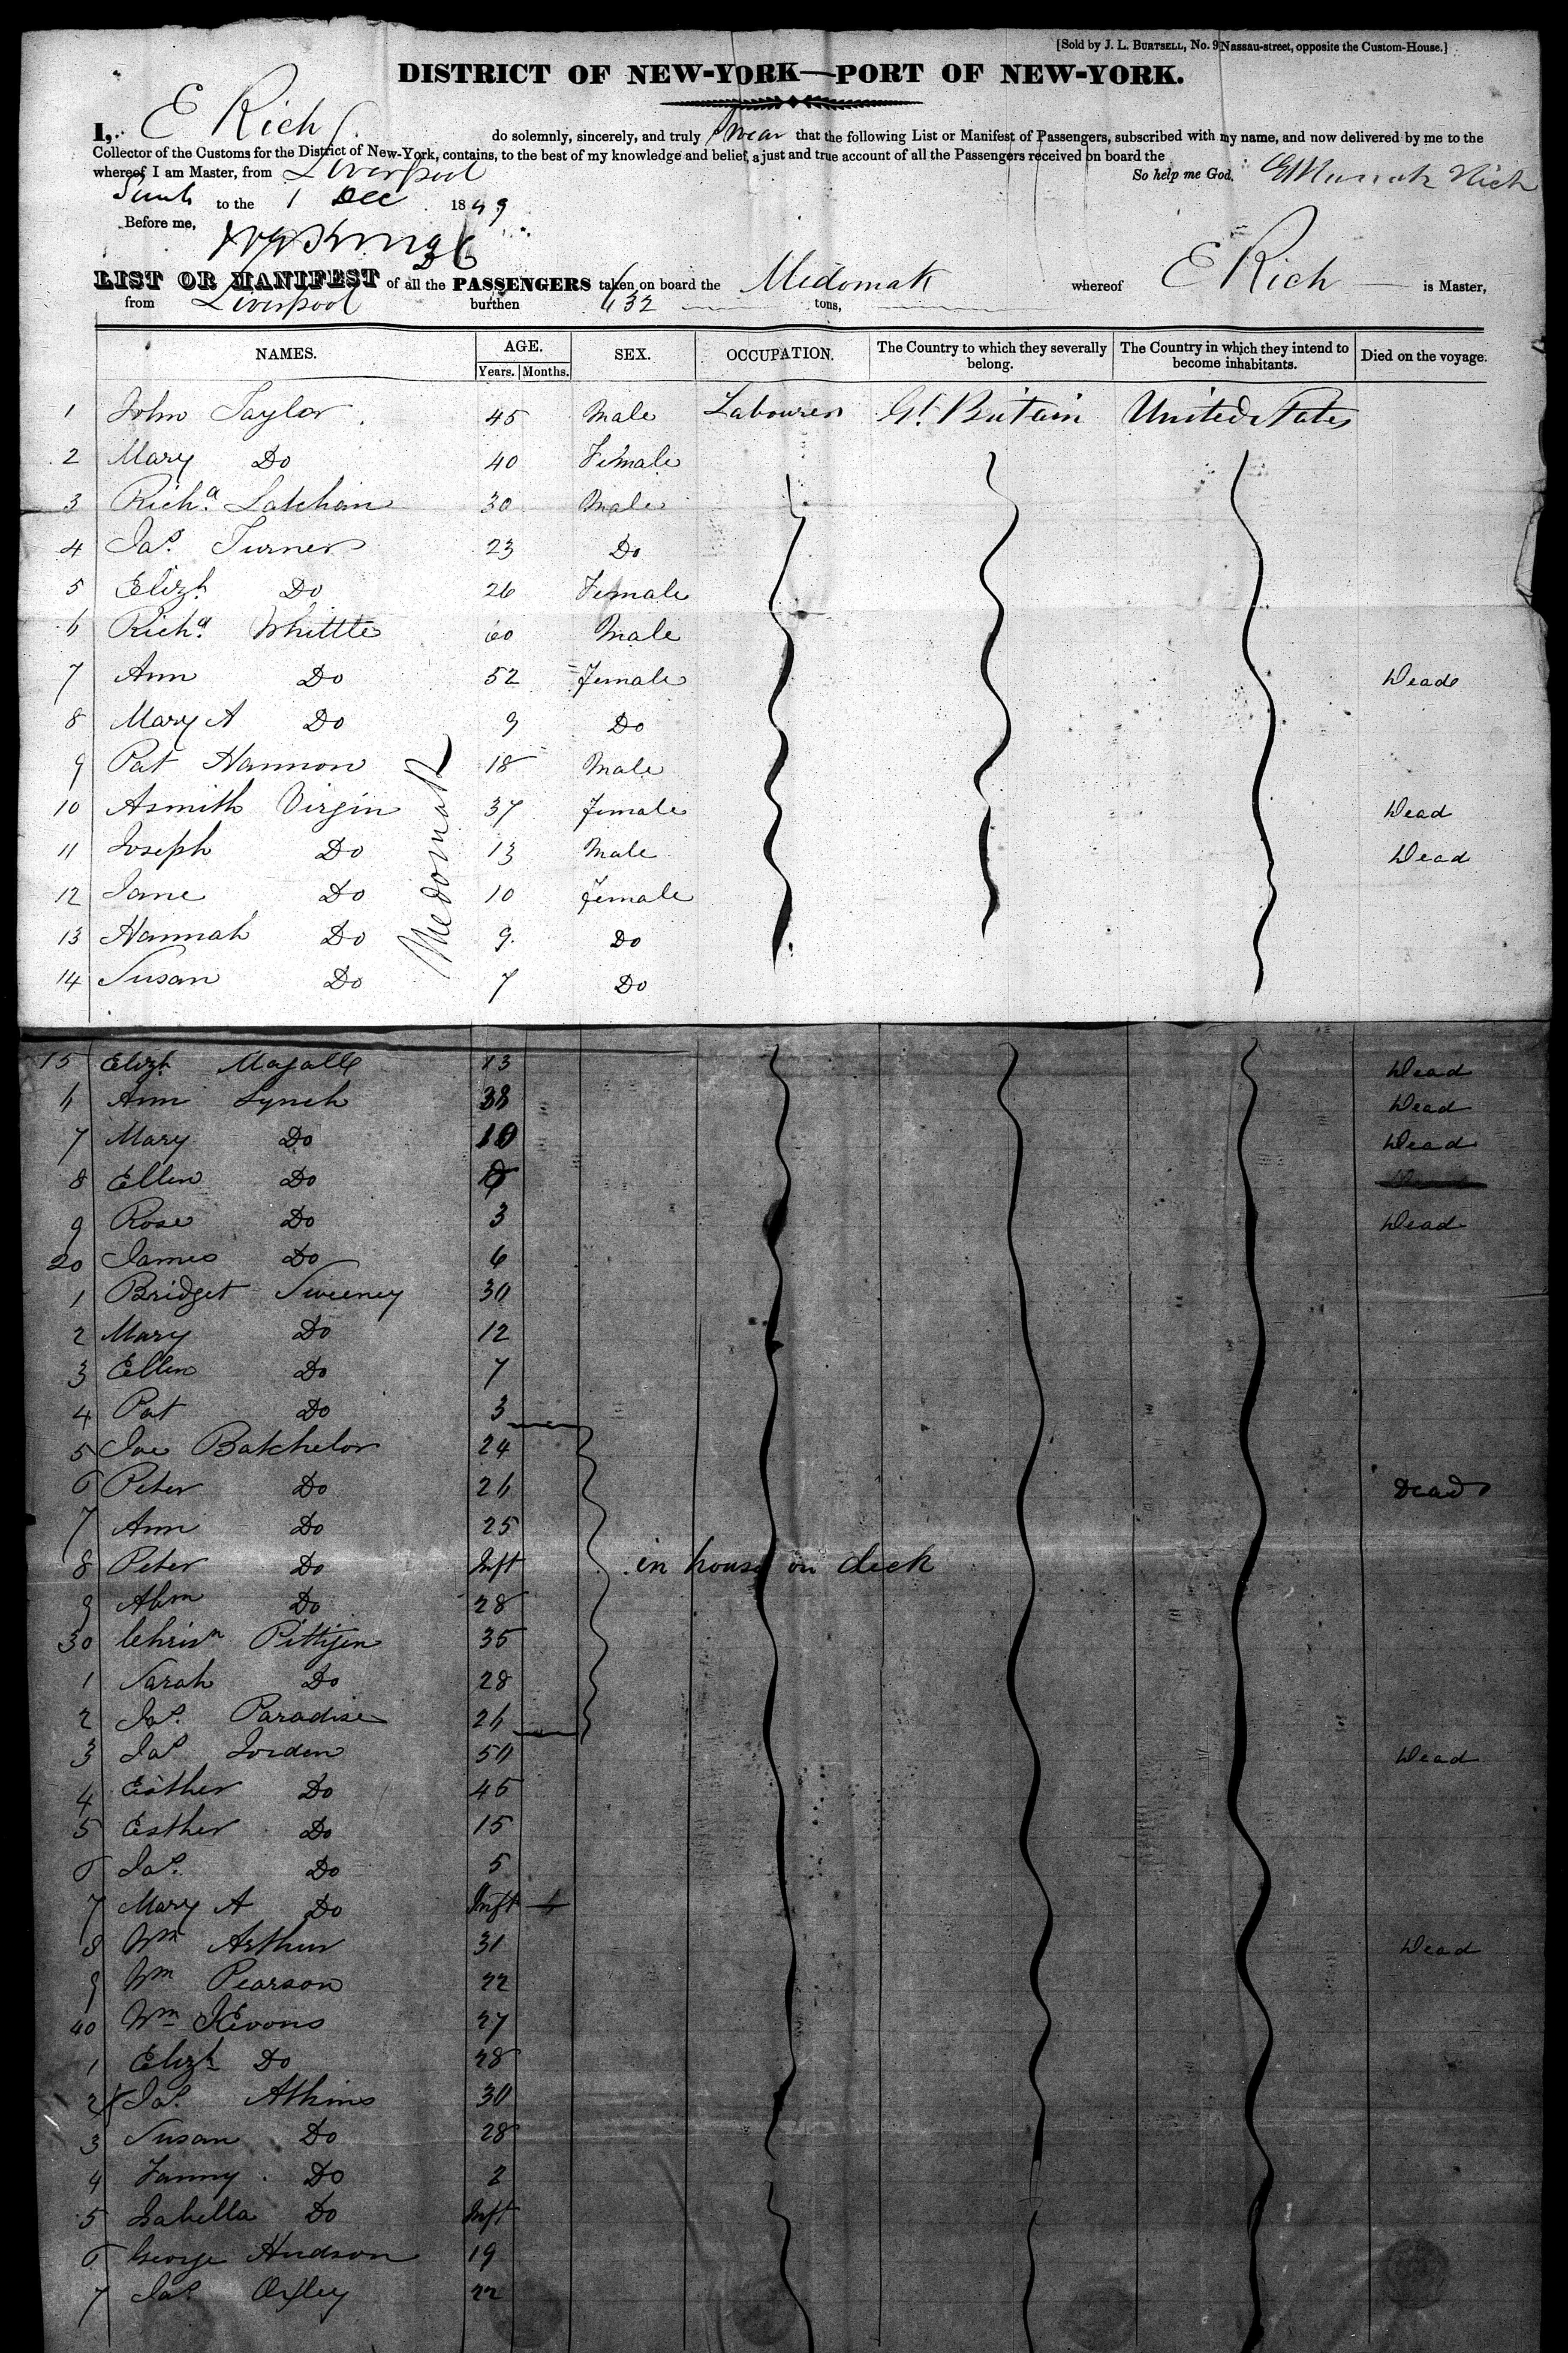 [Sold by J. L. BURTSELL, No. 9 Nassau-street, opposite the Custom-House.]
DISTRICT OF NEW-YORK—PORT OF NEW-YORK.
I, E Rich do solemnly, sincerely, and truly swear that the following List or Manifest of Passengers, subscribed with my name, and now delivered by me to the
Collector of the Customs for the District of New-York, contains, to the best of my knowledge and belief, a just and true account of all the Passengers received on board the
whereof I am Master, from Liverpool So help me God. Rich
to the 1 Dec 1849
Before me,
LIST OR MANIFEST of all the PASSENGERS taken on board the Midomak whereof E Rich is Master,
from Liverpool burthen 632 tons,
NAMES. AGE. SEX. OCCUPATION. The Country to which they severally belong. The Country in which they intend to become inhabitants. Died on the voyage.
Years. Months.
1 John Taylor 45 Male Labourer Gt. Britain United States
2 Mary Do 40 Female
3 Richd. Latchan 30 Male
4 Jas. Turner 23 Do
5 Elizh. Do 26 Female
6 Richd. Whittle 60 Male
7 Ann Do 52 Female Dead
8 Mary A Do 9 Do
9 Pat Hannon 18 Male
10 Asmith Virgin 37 Female Dead
11 Joseph Do 13 Male Dead
12 Jane Do 10 Female
13 Hannah Do 9 Do
14 Susan Do 7 Do
Medomak
15 Elizh. 13 Dead
6 Ann Lynch 38 Dead
7 Mary Do 10 Dead
8 Ellen Do
9 Rose Do 3 Dead
20 James Do 6
1 Bridget Sweeney 30
2 Mary Do 12
3 Ellen Do 7
4 Pat Do 3
5 Joe Batchelor 24
6 Peter Do 26 Dead
7 Ann Do 25
8 Peter Do Inft in house on deck
9 Abm Do 28
30 Chrisn Pittijen 35
1 Sarah Do 28
2 Jas. Paradise 26
3 Jas. Jorden 50 Dead
4 Esther Do 45
5 Esther Do 15
6 Jas. Do 5
7 Mary A Do Inft
8 Wm Arthur 31 Dead
9 Wm Pearson 22
40 Wm JEvons 27
1 Elizh Do 28
2 Jas. Atkins 30
3 Susan Do 28
4 Fanny Do 2
5 Isabella Do Inft
6 George Hudson 19
7 Jas. Oxley 22